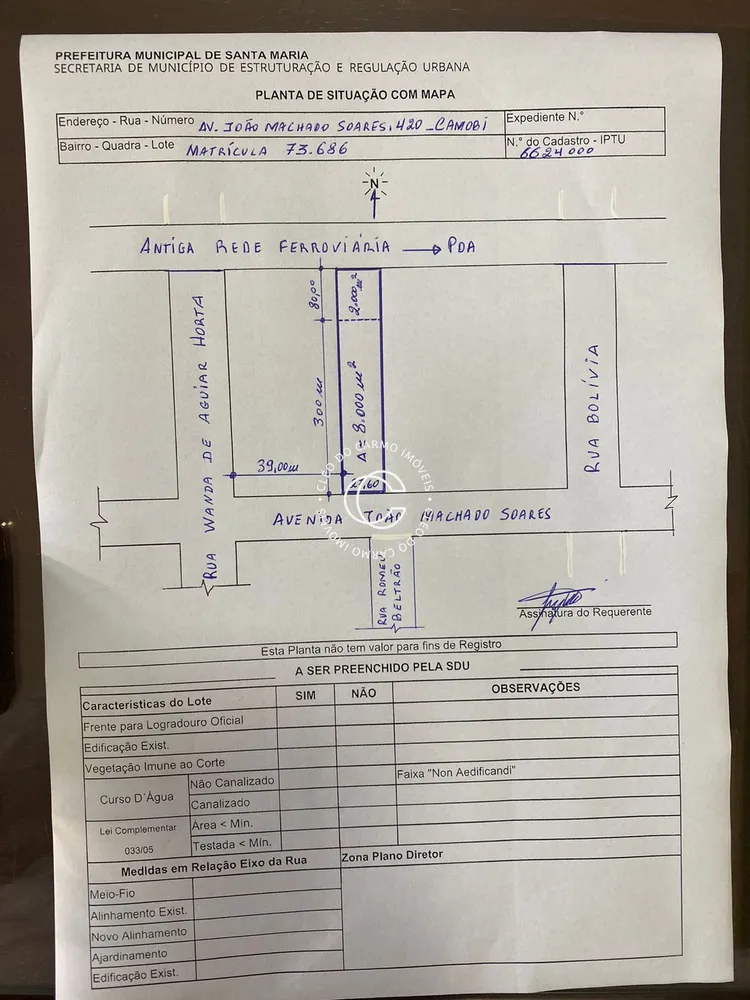 PREFEITURA MUNICIPAL DE SANTA MARIA
SECRETARIA DE MUNICÍPIO DE ESTRUTURAÇÃO E REGULAÇÃO URBANA
PLANTA DE SITUAÇÃO COM MAPA
Endereço - Rua - Número AV. JOÃO MACHADO SOARES, 420 _ CAMOBI
Expediente N.°
Bairro - Quadra - Lote MATRÍCULA 73.686
N.° do Cadastro - IPTU
6624000
N
ANTIGA REDE FERROVIÁRIA → PDA
80,00
2.000 m²
300 m
A = 8.000 m²
RUA WANDA DE AGUIAR HORTA
RUA BOLÍVIA
39,00m
27,60
CLEO DO CARMO IMÓVEIS
CLEO DO CARMO IMÓVEIS
AVENIDA JOÃO MACHADO SOARES
RUA ROMEU
BELTRÃO
Assinatura do Requerente
Esta Planta não tem valor para fins de Registro
A SER PREENCHIDO PELA SDU
Características do Lote SIM NÃO OBSERVAÇÕES
Frente para Logradouro Oficial
Edificação Exist.
Vegetação Imune ao Corte
Curso D´Água Não Canalizado Faixa "Non Aedificandi"
Canalizado
Lei Complementar
033/05
Área < Mín.
Testada < Mín.
Medidas em Relação Eixo da Rua Zona Plano Diretor
Meio-Fio
Alinhamento Exist.
Novo Alinhamento
Ajardinamento
Edificação Exist.